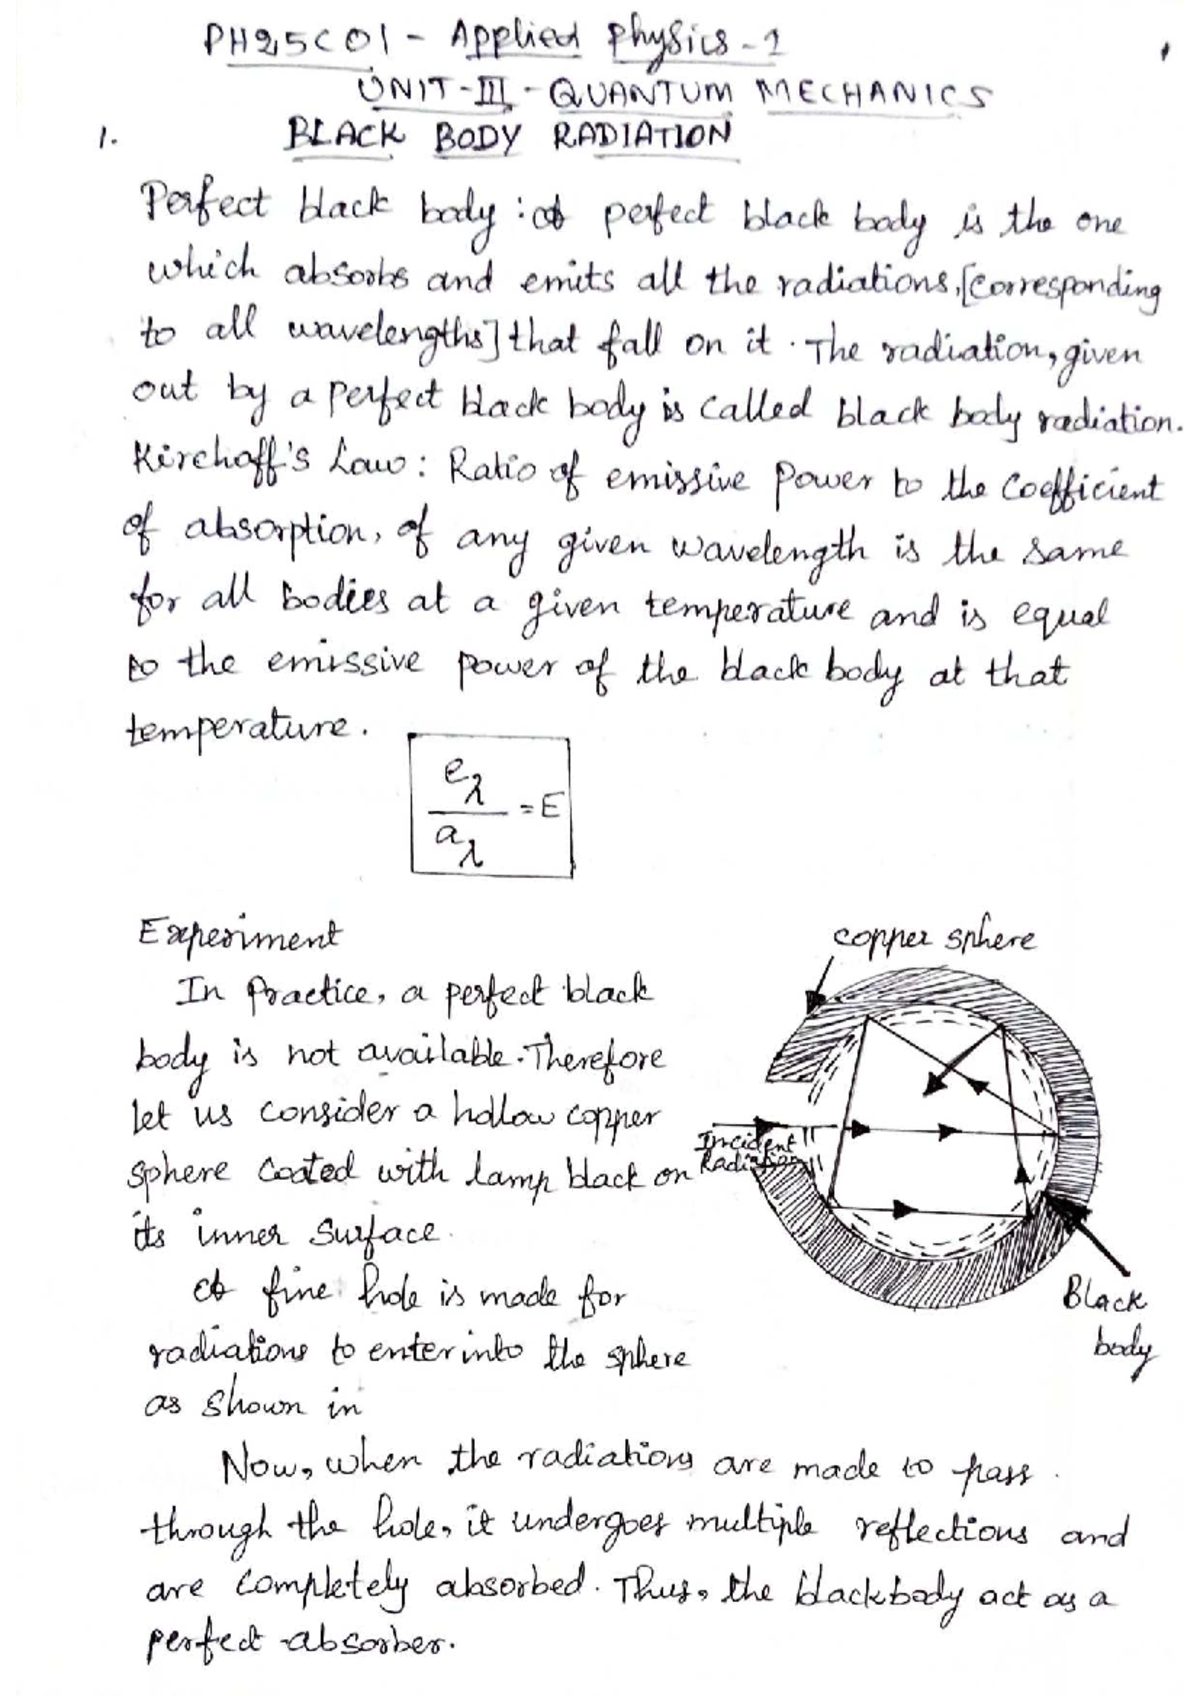 PH25C01 - Applied Physics-1
UNIT-III - QUANTUM MECHANICS
1. BLACK BODY RADIATION
Perfect black body : A perfect black body is the one
which absorbs and emits all the radiations, [corresponding
to all wavelengths] that fall on it. The radiation, given
out by a perfect black body is called black body radiation.
Kirchoff's Law: Ratio of emissive power to the coefficient
of absorption, of any given wavelength is the same
for all bodies at a given temperature and is equal
to the emissive power of the black body at that
temperature.
eλ/aλ = E
Experiment
In Practice, a perfect black
body is not available. Therefore
let us consider a hollow copper
sphere coated with lamp black on
its inner surface.
A fine hole is made for
radiations to enter into the sphere
as shown in
copper sphere
Incident
Radiation
Black
body
Now, when the radiations are made to pass
through the hole, it undergoes multiple reflections and
are completely absorbed. Thus, the blackbody act as a
perfect absorber.